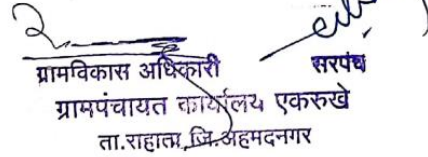 ग्रामविकास अधिकारी सरपंच
ग्रामपंचायत कार्यालय एकरुखे
ता.राहाता, जि.अहमदनगर